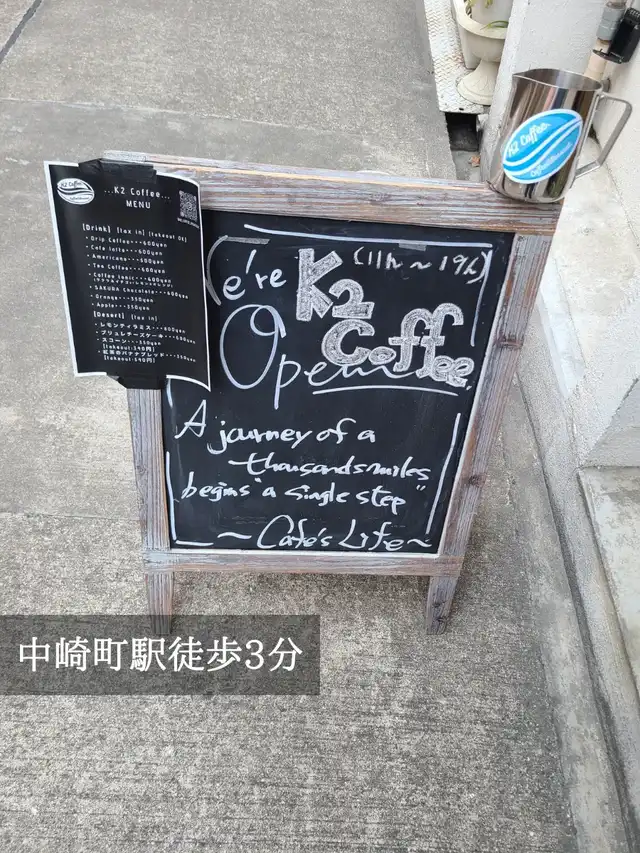 K2 Coffee
...K2 Coffee...
MENU
[Drink] [tax in] [takeout OK]
・Drip Coffee・・・600yen
・Cafe latte・・・600yen
・Americano・・・500yen
・Tea Coffee・・・600yen
・Coffee tonic・・・600yen
・SAKURA Chocolate・・・600yen
・Orange・・・350yen
・Apple・・・350yen
[Desert] [tax in]
・レモンティラミス・・・600yen
・ブリュレチーズケーキ・・・600yen
・スコーン・・・350yen
[takeout:340円]
・紅茶のバナナブレッド・・・550yen
[takeout:540円]
We're K2 (11h~19h)
Coffee
Open
A journey of a
thousands miles
begins "a single step"
~Cafe's Life~
K2 Coffee
中崎町駅徒歩3分